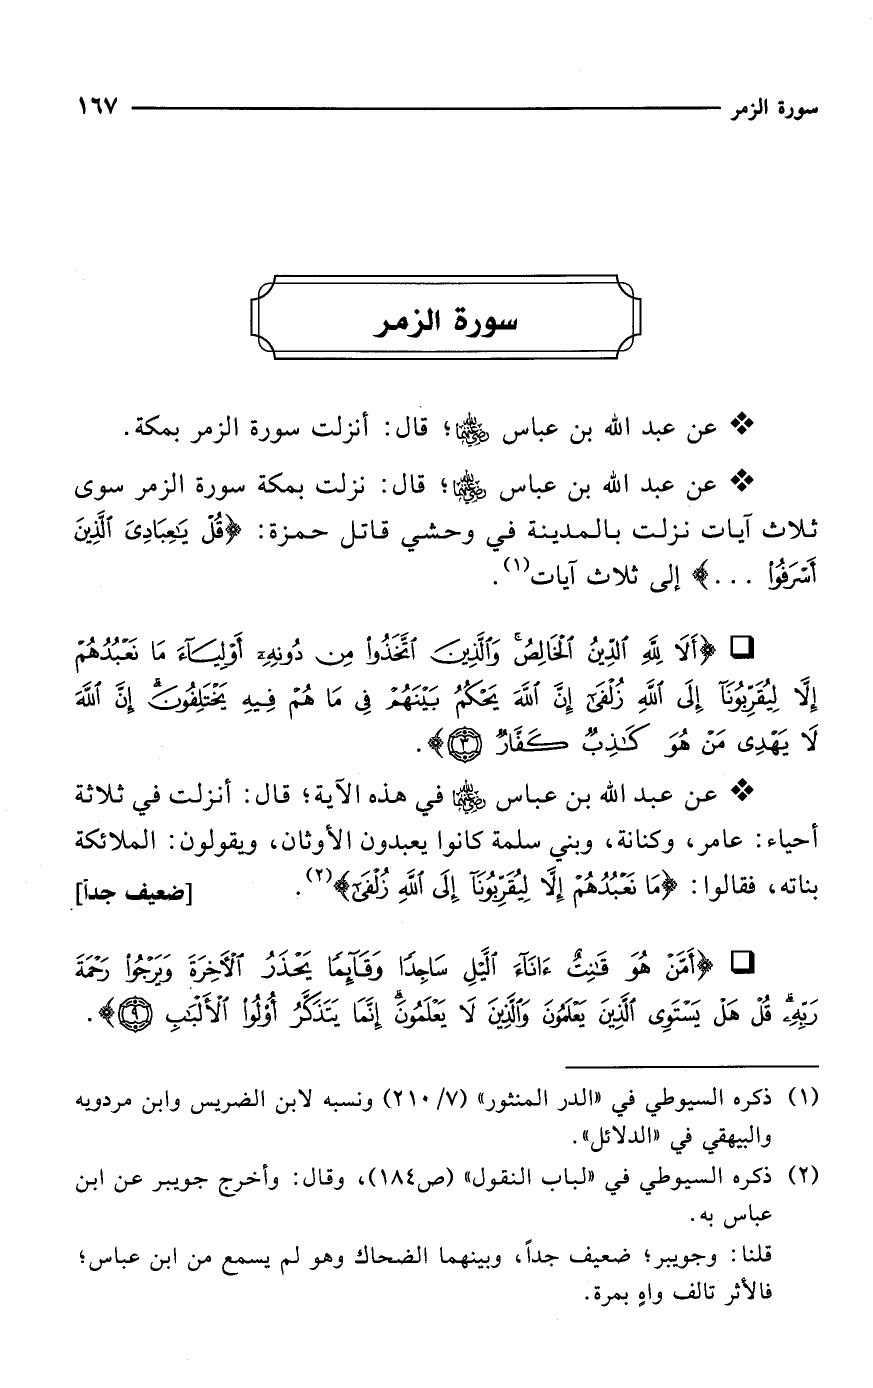 سورة الزمر ١٦٧
سورة الزمر
❖ عن عبد الله بن عباس ﵄؛ قال: أنزلت سورة الزمر بمكة.
❖ عن عبد الله بن عباس ﵄؛ قال: نزلت بمكة سورة الزمر سوى
ثلاث آيات نزلت بالمدينة في وحشي قاتل حمزة: ﴿قُلْ يَٰعِبَادِىَ ٱلَّذِينَ
أَسْرَفُوا۟ ...﴾ إلى ثلاث آيات(١).
❑ ﴿أَلَا لِلَّهِ ٱلدِّينُ ٱلْخَالِصُ ۚ وَٱلَّذِينَ ٱتَّخَذُوا۟ مِن دُونِهِۦٓ أَوْلِيَآءَ مَا نَعْبُدُهُمْ
إِلَّا لِيُقَرِّبُونَآ إِلَى ٱللَّهِ زُلْفَىٰٓ إِنَّ ٱللَّهَ يَحْكُمُ بَيْنَهُمْ فِى مَا هُمْ فِيهِ يَخْتَلِفُونَ ۗ إِنَّ ٱللَّهَ
لَا يَهْدِى مَنْ هُوَ كَٰذِبٌ كَفَّارٌ ٣﴾.
❖ عن عبد الله بن عباس ﵄ في هذه الآية؛ قال: أنزلت في ثلاثة
أحياء: عامر، وكنانة، وبني سلمة كانوا يعبدون الأوثان، ويقولون: الملائكة
بناته، فقالوا: ﴿مَا نَعْبُدُهُمْ إِلَّا لِيُقَرِّبُونَآ إِلَى ٱللَّهِ زُلْفَىٰٓ﴾(٢). [ضعيف جداً]
❑ ﴿أَمَّنْ هُوَ قَٰنِتٌ ءَانَآءَ ٱلَّيْلِ سَاجِدًا وَقَآئِمًا يَحْذَرُ ٱلْءَاخِرَةَ وَيَرْجُوا۟ رَحْمَةَ
رَبِّهِۦ ۗ قُلْ هَلْ يَسْتَوِى ٱلَّذِينَ يَعْلَمُونَ وَٱلَّذِينَ لَا يَعْلَمُونَ ۗ إِنَّمَا يَتَذَكَّرُ أُو۟لُوا۟ ٱلْأَلْبَٰبِ ٩﴾.
(١) ذكره السيوطي في «الدر المنثور» (٧/ ٢١٠) ونسبه لابن الضريس وابن مردويه
والبيهقي في «الدلائل».
(٢) ذكره السيوطي في «لباب النقول» (ص١٨٤)، وقال: وأخرج جويبر عن ابن
عباس به.
قلنا: وجويبر؛ ضعيف جداً، وبينهما الضحاك وهو لم يسمع من ابن عباس؛
فالأثر تالف واهٍ بمرة.